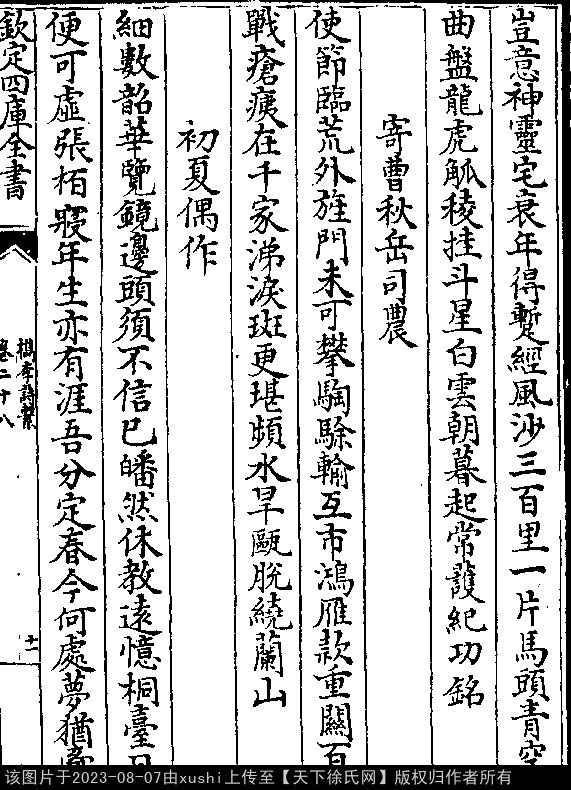 豈意神靈宅衰年得蹔經風沙三百里一片馬頭青空
曲盤龍虎觚稜挂斗星白雲朝暮起常護紀功銘
寄曹秋岳司農
使節臨荒外旌門未可攀騊駼輸互市鴻雁款重關百
戰瘡痍在千家涕淚斑更堪頻水旱甌脫繞蘭山
初夏偶作
細數韶華覽鏡邊頭須不信已皤然休教遠憶桐臺日
便可虛張栢寢年生亦有涯吾分定春今何處夢猶
欽定四庫全書
卷二十八
十一
该图片于2023-08-07由xushi上传至【天下徐氏网】版权归作者所有